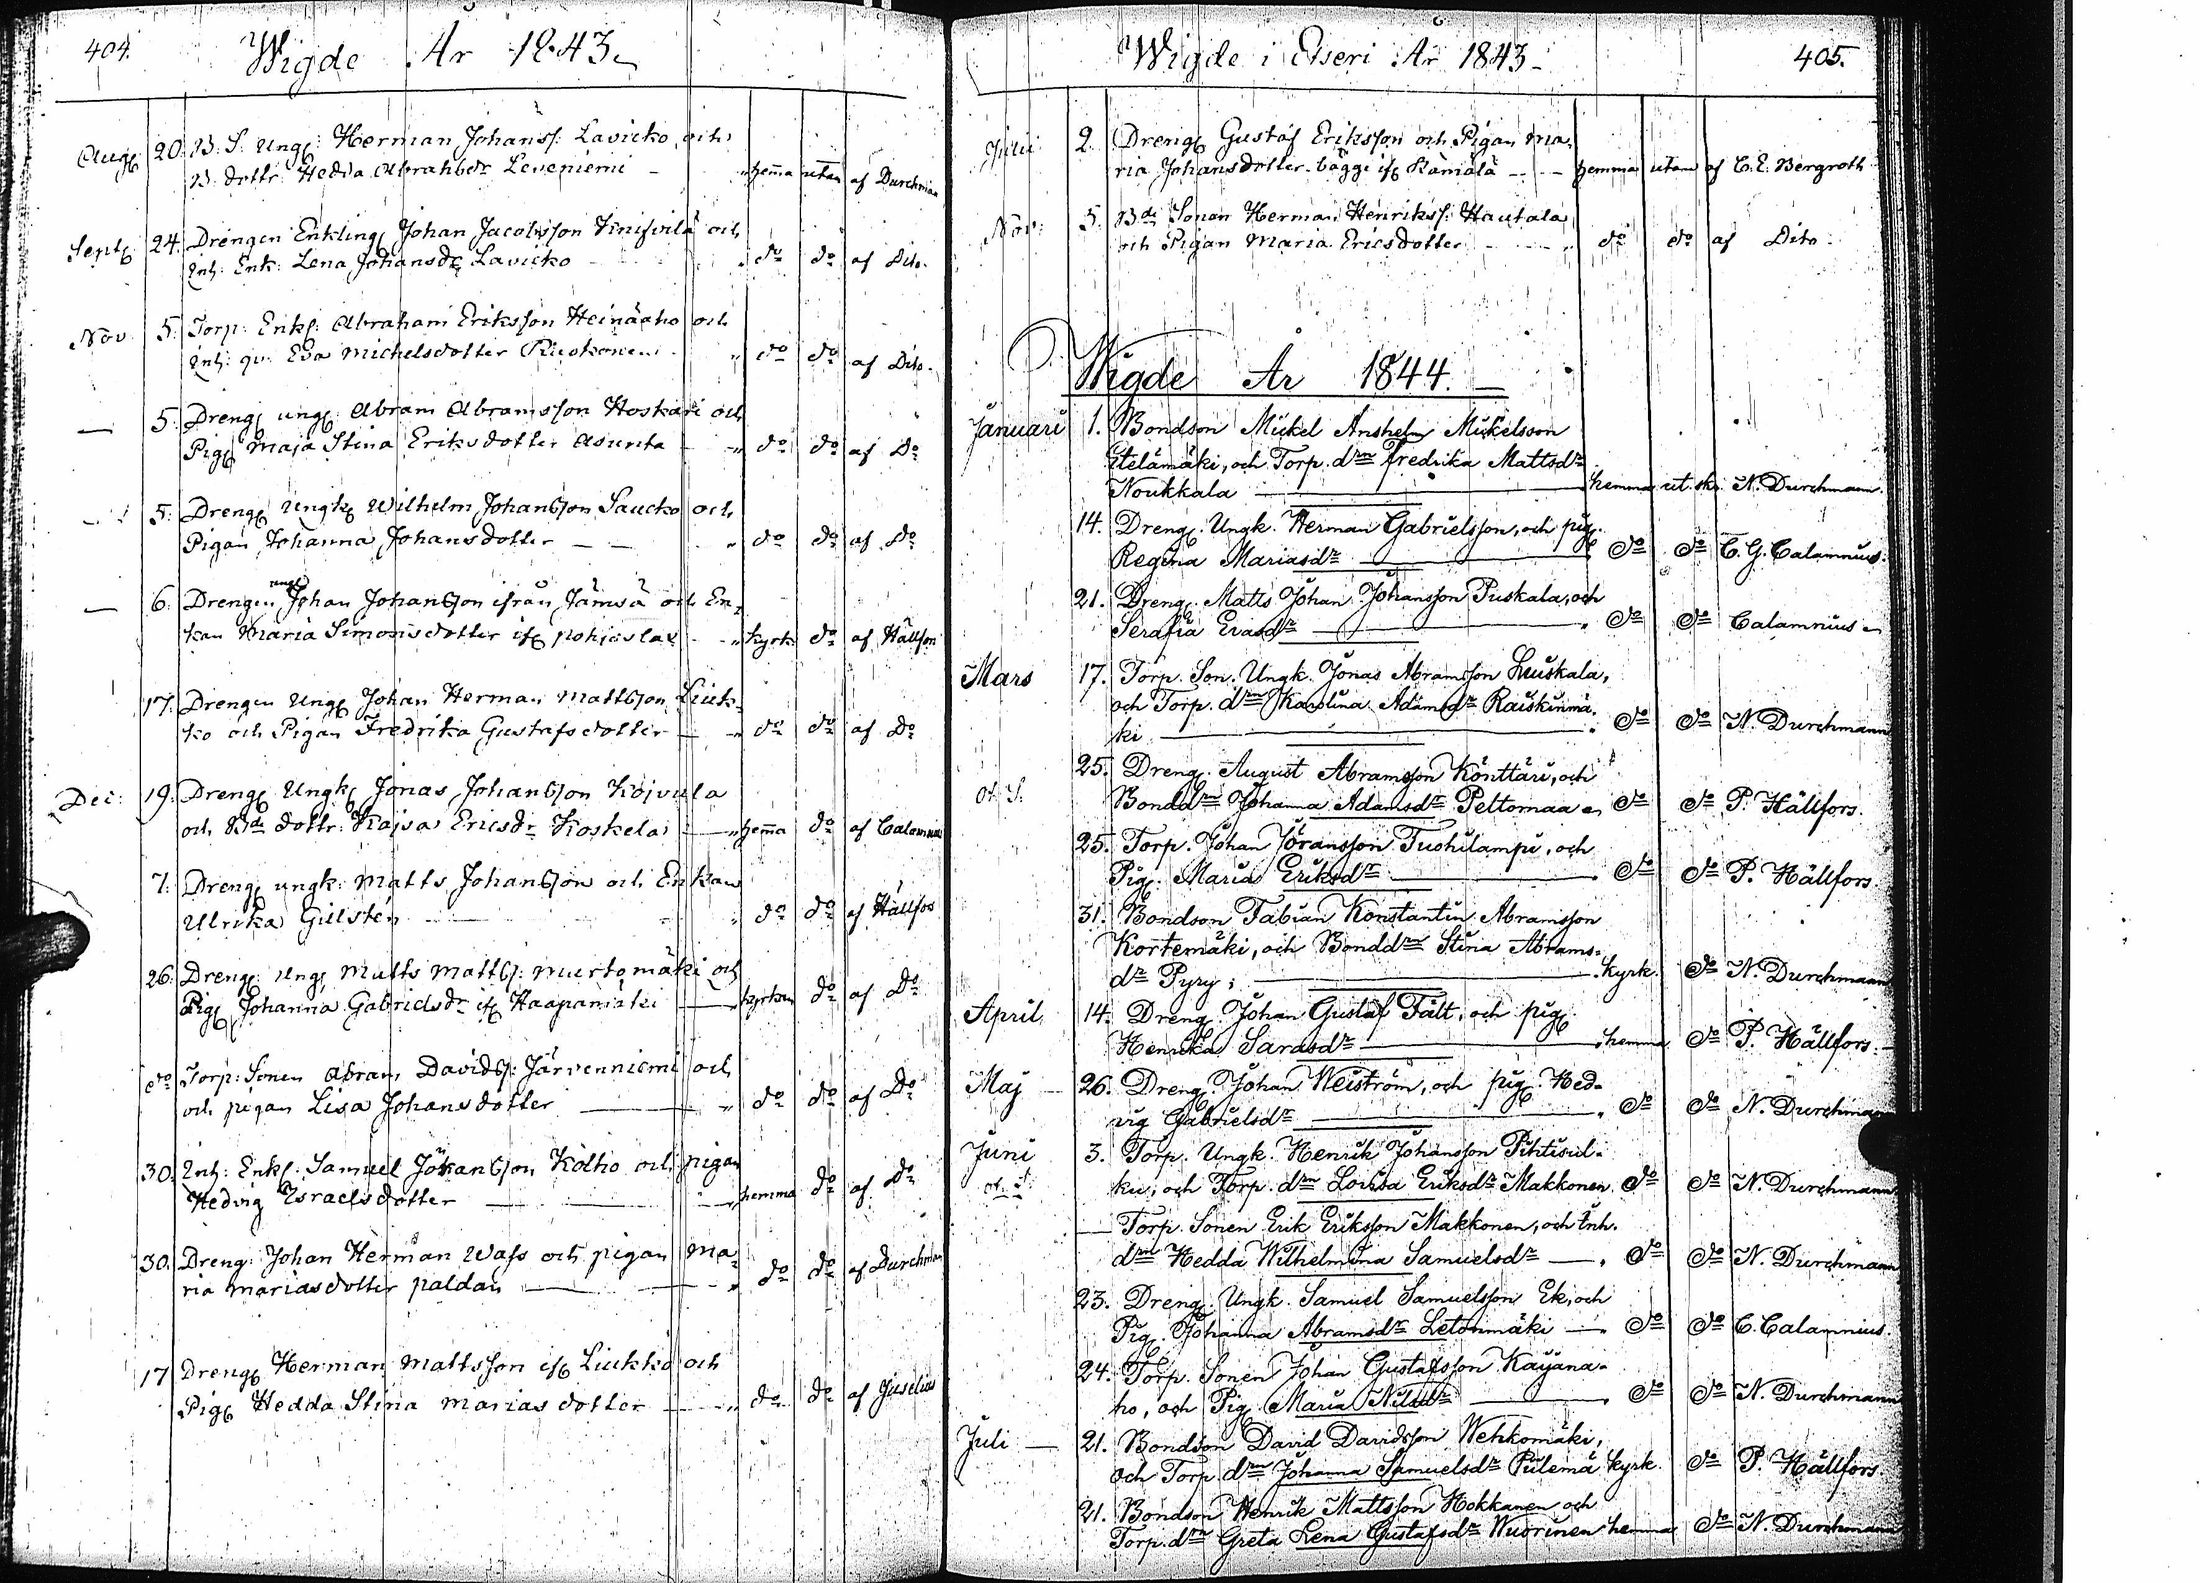 404.
Wigde År 1843
Aug 20. B. S. Ung: Herman Johans: Lavicko och
B. dottr: Hedda Abrahbdr Leveniemi hema utan af Durchman
Sept 24. Drengen Enkling Johan Jacobsson och
Inh: Enk: Lena Johansdr Lavicko do do af Dito.
Nov 5. Torp: Enkl: Abraham Eriksson Heinäaho och
Inh: qv: Eva Michelsdotter do do af Dito.
— 5. Dreng ung: Abram Abramsson Hoskari och
Pig Maja Stina Eriksdotter Asunta do do af Do
5. Dreng Ungk Wilhelm Johansson Saucko och
Pigan Johanna Johansdotter — — do do af Do
— 6. Drengen ungk Johan Johansson ifrån Jämsä och En-
kan Maria Simonsdotter if pohjaslax kyrk do af Hällfors
17. Drengen Ung Johan Herman Mattsson Liuk-
ko och Pigan Fredrika Gustafsdotter — do do af Do
Dec: 19. Dreng Ungk Jonas Johansson Koivula
och Bde dottr: Kajsa Ericsdr Koskela hema do af Calamnius
7. Dreng ungk: Matts Johansson och Enkan
Ulrika Gillstén do do af Hällfos
26. Dreng Ung Matts Matts: Murtomäki och
Pig Johanna Gabrielsdr if Haapamäki kyrkan do af Do
do Torp: Sonen Abram Davids: Järvenniemi och
och pigan Lisa Johansdotter — do do af Do
30. Inh: Enkl: Samuel Johansson Kolho och pigan
Hedvig Israelsdotter — hemma do af Do
30. Dreng: Johan Herman Wass och pigan Ma-
ria Mariasdotter paldan — do do af Durchman
17 Dreng Herman Mattsson if Liukko och
Pig Hedda Stina Mariasdotter — do do af Juselius
Wigde i Etseri År 1843
405.
Julii 2. Dreng Gustaf Eriksson och Pigan Ma-
ria Johansdotter bägge if Rämälä — hemma utan af C. E. Bergroth
Nov: 5. Bde Sonen Herman Henriks: Hautala
och Pigan Maria Ericsdotter do do af Dito
Wigde År 1844.
Januari 1. Bondson Mickel Anshelm Mickelsson
Etelämäki, och Torp. drn Fredrika Mattsdr
Noukkala — hemma ut. sk. N. Durchmann.
14. Dreng. Ungk. Herman Gabrielsson, och pig.
Regina Mariasdr — do do C. G. Calamnius.
21. Dreng. Matts Johan Johansson Puskala, och
Serafia Evasdr — do do Calamnius
Mars 17. Torp. Son. Ungk. Jonas Abramsson Luuskala,
och Torp. drn Karolina Adamsdr Raiskinmä-
ki — do do N. Durchmann
25. Dreng. August Abramsson Könttäri, och
Bonddrn Johanna Adamsdr Peltomaa do do P. Hällfors.
25. Torp. Johan Jöransson Tuohilampi, och
Pig. Maria Eriksdr — do do P. Hällfors.
31. Bondson Fabian Konstantin Abramsson
Kortemäki, och Bonddrn Stina Abrams-
dr Pyry; — kyrk. do N. Durchmann
April 14. Dreng. Johan Gustaf Fält, och pig.
Henrika Sarasdr — hemma do P. Hällfors.
Maj — 26. Dreng. Johan Weiström, och pig. Hed-
vig Gabrielsdr — do do N. Durchmann
Juni 3. Torp. Ungk. Henrik Johansson Pihtisul-
ku, och Torp. drn Lovisa Eriksdr Makkonen. do do N. Durchmann
— Torp. Sonen Erik Eriksson Makkonen, och Inh.
drn Hedda Wilhelmina Samuelsdr — do do N. Durchmann
23. Dreng. Ungk. Samuel Samuelsson Ek, och
Pig. Johanna Abramsdr Letonmäki — do do C. Calamnius.
24. Torp. Sonen Johan Gustafsson Kayana-
ho, och Pig. Maria Nilsdr — do do N. Durchmann
Juli — 21. Bondson David Davidsson Wehkomäki,
och Torp. drn Johanna Samuelsdr Pülemä kyrk. do P. Hällfors.
21. Bondson Henrik Mattsson Hokkanen och
Torp. drn Greta Lena Gustafsdr Wuorinen hemma do N. Durchmann